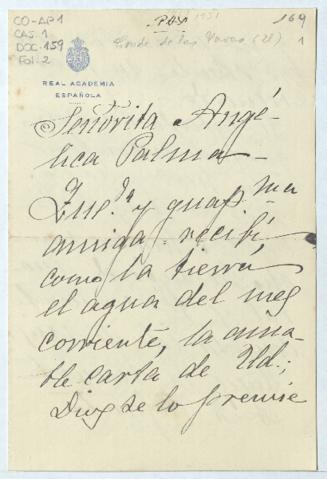 CO-AP1
CAS. 1
DOC. 159
Fol. 2
169
1
Conde de las Navas
REAL ACADEMIA
ESPAÑOLA
Señorita Angé-
lica Palma -
Que.da y guap.ma
amiga: recibí
como la tierra
el agua del mes
corriente, la ama-
ble carta de Ud.;
Dios se lo premie